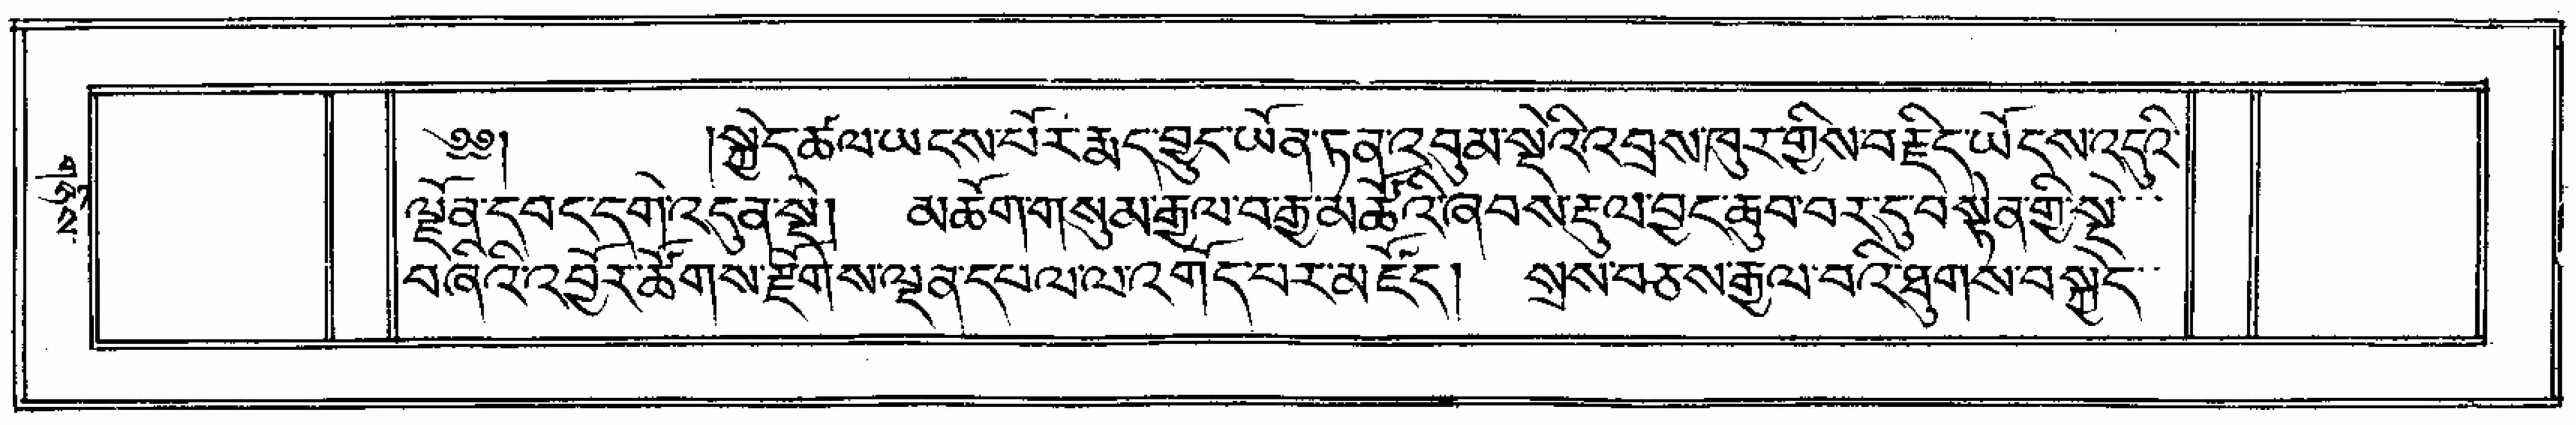 ༄༅། །སྐྱེད་ཚལ་ཡངས་པོར་རྨད་བྱུང་ཡོན་ཏན་འབུམ་སྡེའི་འབྲས་ཁུར་གྱིས་བརྗིད་ཡོངས་འདུའི་
ལྗོན་དབང་དགེ་འདུན་སྡེ། མཆོག་གསུམ་རྒྱལ་བ་རྒྱ་མཚོའི་ཞབས་རྡུལ་བྱང་ཆུབ་བར་དུ་བསྟེན་གྱི་སྡེ་
བཞིའི་འབྱོར་ཚོགས་རྫོགས་ལྡན་དཔལ་ལ་འགོད་པར་མཛོད། སྲས་བཅས་རྒྱལ་བའི་ཐུགས་བསྐྱེད་